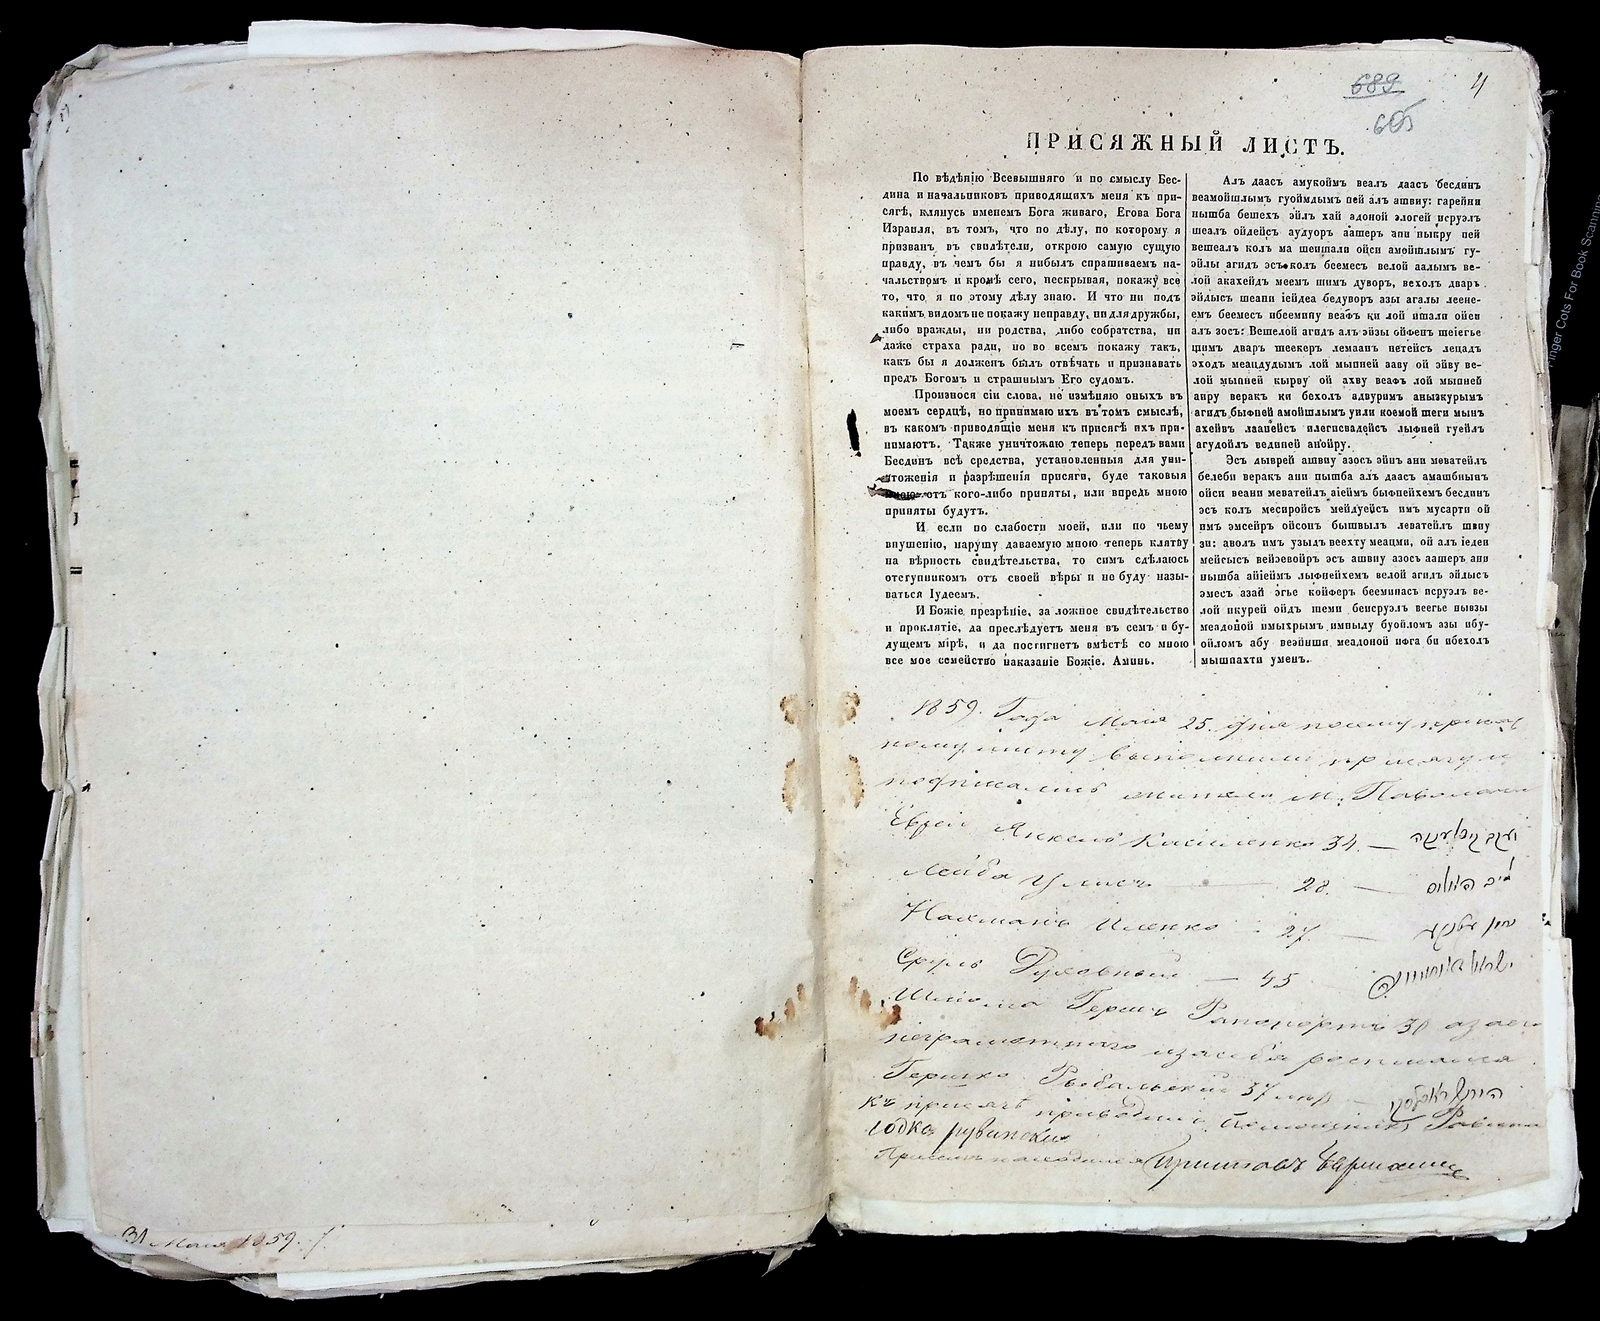 689
4
605
ПРИСЯЖНЫЙ ЛИСТЪ.
По вѣдѣнію Всевышняго и по смыслу Бес-
дина и начальниковъ приводящихъ меня къ при-
сягѣ, клянусь именемъ Бога живаго, Егова Бога
Израиля, въ томъ, что по дѣлу, по которому я
призванъ въ свидѣтели, открою самую сущую
правду, въ чемъ бы я нибылъ спрашиваемъ на-
чальствомъ и кромѣ сего, нескрывая, покажу все
то, что я по этому дѣлу знаю. И что ни подъ
какимъ видомъ не покажу неправду, ни для дружбы,
либо вражды, ни родства, либо собратства, ни
даже страха ради, но во всемъ покажу такъ,
какъ бы я долженъ былъ отвѣчать и признавать
предъ Богомъ и страшнымъ Его судомъ.
Произнося сіи слова, не измѣняю оныхъ въ
моемъ сердцѣ, но принимаю ихъ въ томъ смыслѣ,
въ какомъ приводящіе меня къ присягѣ ихъ при-
нимаютъ. Также уничтожаю теперь передъ вами
Бесдинъ всѣ средства, установленныя для уни-
чтоженія и разрѣшенія присяги, буде таковыя
мною отъ кого-либо приняты, или впредь мною
приняты будутъ.
И если по слабости моей, или по чьему
внушенію, нарушу даваемую мною теперь клятву
на вѣрность свидѣтельства, то симъ сдѣлаюсь
отступникомъ отъ своей вѣры и не буду назы-
ваться Іудеемъ.
И Божіе презрѣніе, за ложное свидѣтельство
и проклятіе, да преслѣдуетъ меня въ семъ и бу-
дущемъ мірѣ, и да постигнетъ вмѣстѣ со мною
все мое семейство наказаніе Божіе. Аминь.
Алъ даасъ амукоймъ веалъ даасъ бесдинъ
веамойшлымъ гуоймдымъ пей алъ ашвиу: гарейни
нышба бешехъ эйлъ хай адоной элогей исруэлъ
шеалъ ойдейсъ аудуоръ аашеръ ани ныкру пей
вешеалъ колъ ма шеишали ойси амойшлымъ гу-
эйлы агидъ эсъ колъ беемесъ велой аалымъ ве-
лой акахейдъ меемъ шимъ дуворъ, вехолъ дваръ
эйдысъ шеани іейдеа бедуворъ азы агалы леене-
емъ беемесъ ибеемину веафъ ки лой ишали ойси
алъ зосъ: Вешелой агидъ алъ эйзы ойфенъ шеіегье
шимъ дваръ шеекеръ лемаанъ нетейсъ лецадъ
эходъ меацдудымъ лой мыпней ааву ой эйву ве-
лой мыпней кырву ой ахву веафъ лой мыпней
аиру веракъ ки бехолъ адвуримъ анызкурымъ
агидъ быфней амойшлымъ уили коемой шеги мынъ
ахейвъ лаанейсъ илегисвадейсъ лыфней гуейлъ
агудойлъ вединей ан'ойру.
Эсъ дыврей ашвиу азосъ эйнъ ани меватейлъ
белеби веракъ ани нышба алъ даасъ амашбнынъ
ойси веани меватейлъ аіеймъ быфнейхемъ бесдинъ
эсъ колъ месиройсъ мейдуейсъ имъ мусарти ой
имъ эмсейръ ойсонъ бышвылъ леватейлъ швиу
зи: аволъ имъ узыдъ веехту меацми, ой алъ іедеи
мейсысъ вейэевойръ эсъ ашвиу азосъ аашеръ ани
нышба айіеймъ лыфнейхемъ велой агидъ эйдысъ
эмесъ азай эгье койферъ бееминасъ исруэлъ ве-
лой икурей ойдъ шеми беисруэлъ веегье нывзы
меадоной имыхрымъ импылу буойломъ азы ибу-
ойломъ абу веэйнши меадоной ифга би ибехолъ
мышпахти уменъ.
1859. Года Мая 25. дня посему присяж
ному листу выполнили присягу и
подписались жители м. Паволочи
Евреи Янкель Касиленко 34 —
Лейба Улисъ — 28. —
Нахманъ Иленко 27. —
Сруль Духовный — 45
Шлиома Гершъ Рапопортъ 30 а за его
неграмотнаго и за себя росписался
Гершко Рыбальскій 37 лѣтъ —
Къ присягѣ приводилъ Помощникъ Равина
31 Мая 1859 г.
Finger Cots For Book Scanning